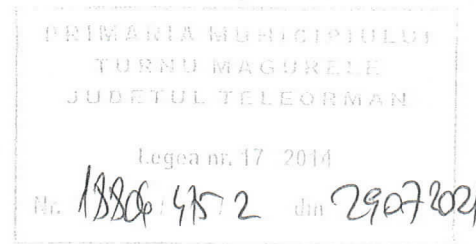 PRIMARIA MUNICIPIULUI
TURNU MAGURELE
JUDETUL TELEORMAN
Legea nr. 17 2014
Nr. 18806 / 415 / 2 din 29072021